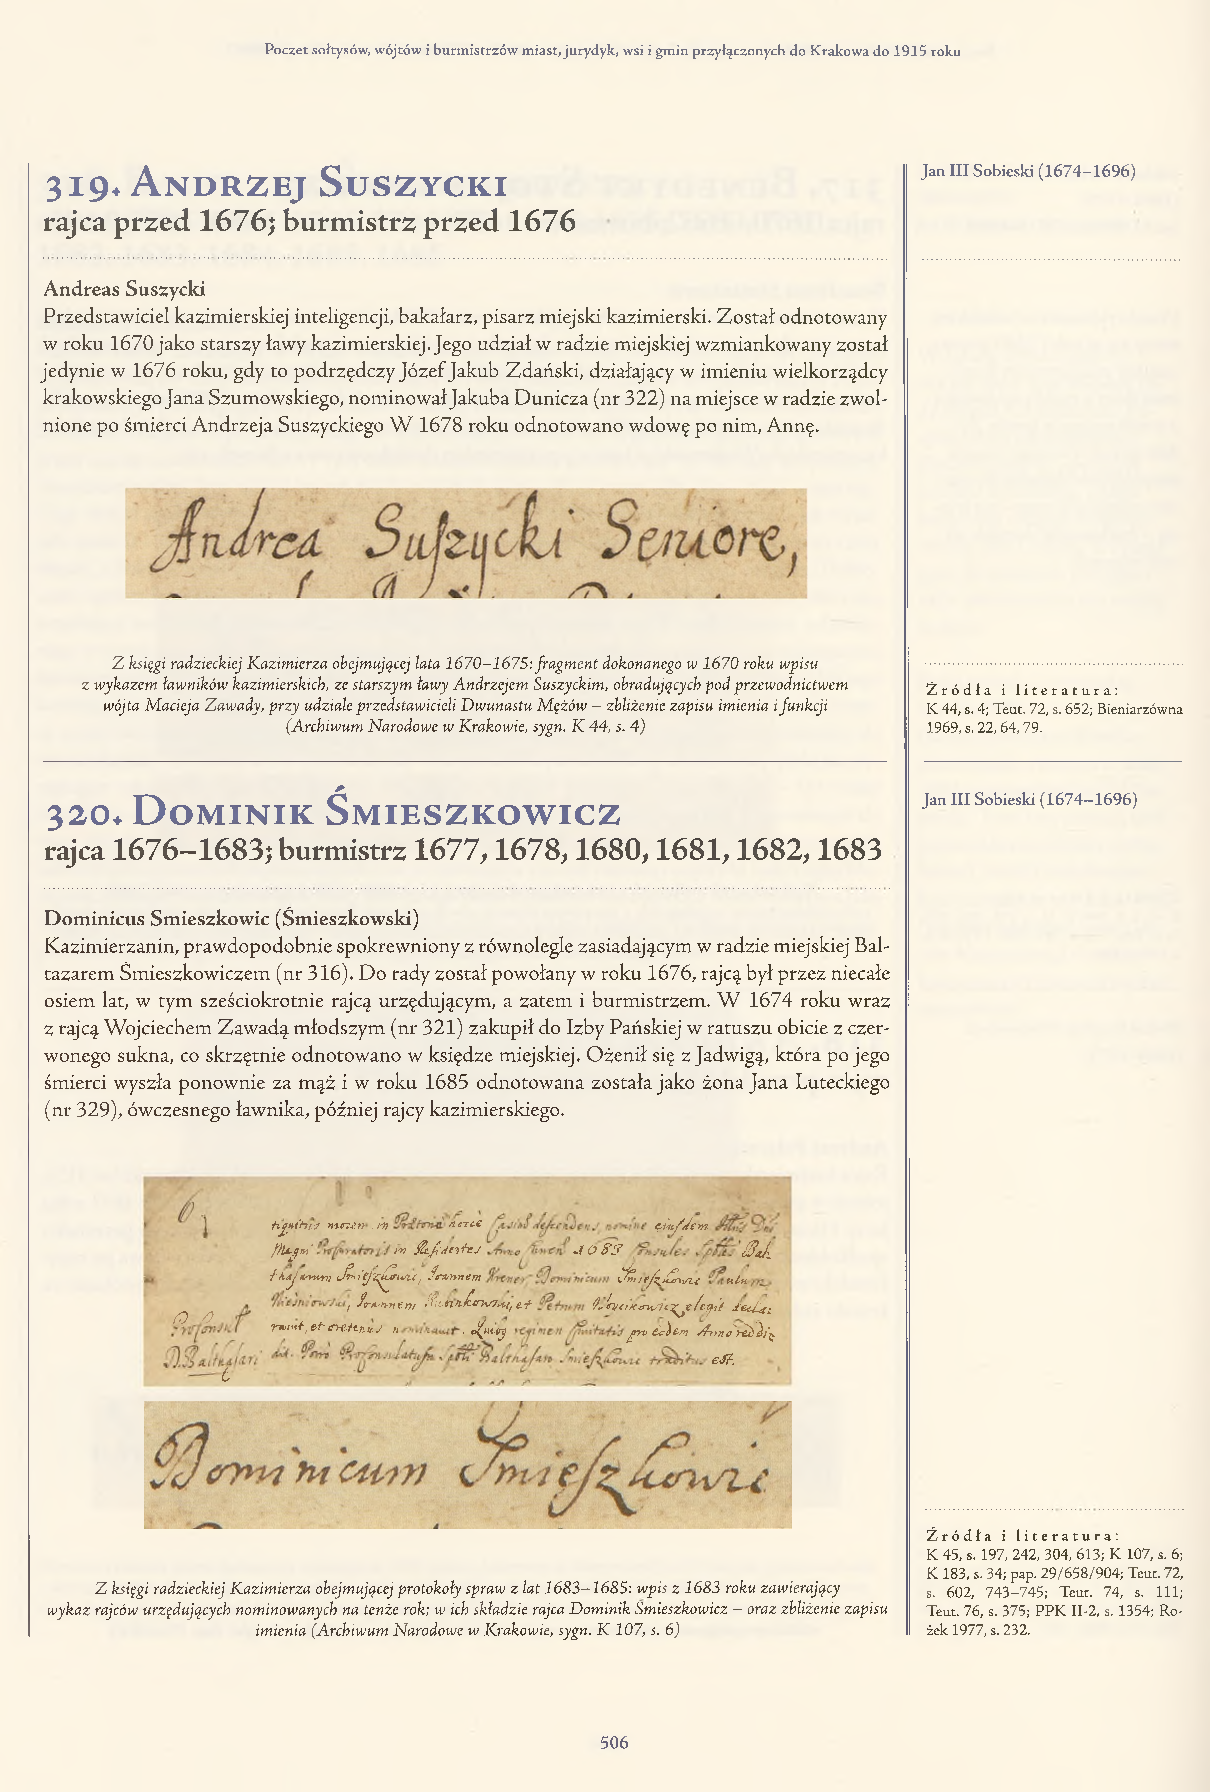 Poczet sołtysów, wójtów i burmistrzów miast, jurydyk, wsi i gmin przyłączonych do Krakowa do 1915 roku
319. Andrzej Suszycki
rajca przed 1676; burmistrz przed 1676
Jan III Sobieski (1674–1696)
Andreas Suszycki
Przedstawiciel kazimierskiej inteligencji, bakałarz, pisarz miejski kazimierski. Został odnotowany
w roku 1670 jako starszy ławy kazimierskiej. Jego udział w radzie miejskiej wzmiankowany został
jedynie w 1676 roku, gdy to podrzędczy Józef Jakub Zdański, działający w imieniu wielkorządcy
krakowskiego Jana Szumowskiego, nominował Jakuba Dunicza (nr 322) na miejsce w radzie zwol-
nione po śmierci Andrzeja Suszyckiego W 1678 roku odnotowano wdowę po nim, Annę.
Andrea Suszycki Seniore,
Z księgi radzieckiej Kazimierza obejmującej lata 1670–1675: fragment dokonanego w 1670 roku wpisu
z wykazem ławników kazimierskich, ze starszym ławy Andrzejem Suszyckim, obradujących pod przewodnictwem
wójta Macieja Zawady, przy udziale przedstawicieli Dwunastu Mężów – zbliżenie zapisu imienia i funkcji
(Archiwum Narodowe w Krakowie, sygn. K 44, s. 4)
Źródła i literatura:
K 44, s. 4; Teut. 72, s. 652; Bieniarzówna
1969, s. 22, 64, 79.
320. Dominik Śmieszkowicz
rajca 1676–1683; burmistrz 1677, 1678, 1680, 1681, 1682, 1683
Jan III Sobieski (1674–1696)
Dominicus Smieszkowic (Śmieszkowski)
Kazimierzanin, prawdopodobnie spokrewniony z równolegle zasiadającym w radzie miejskiej Bal-
tazarem Śmieszkowiczem (nr 316). Do rady został powołany w roku 1676, rajcą był przez niecałe
osiem lat, w tym sześciokrotnie rajcą urzędującym, a zatem i burmistrzem. W 1674 roku wraz
z rajcą Wojciechem Zawadą młodszym (nr 321) zakupił do Izby Pańskiej w ratuszu obicie z czer-
wonego sukna, co skrzętnie odnotowano w księdze miejskiej. Ożenił się z Jadwigą, która po jego
śmierci wyszła ponownie za mąż i w roku 1685 odnotowana została jako żona Jana Luteckiego
(nr 329), ówczesnego ławnika, później rajcy kazimierskiego.
6
morem in descendens, nomine eiusdem
Magni Procuratoris in Anno 1683 Consules Bal
thasarum Smieszkowic, Joannem Dominicum Smieszkowic Paulum
Joannem et Petrum elegit decla:
ravit, et nominavit. regimen Civitatis pro eodem Anno
D. Balthasari Balthasaro Smieszkowic traditus est.
Dominicum Smieszkowic
Z księgi radzieckiej Kazimierza obejmującej protokoły spraw z lat 1683–1685: wpis z 1683 roku zawierający
wykaz rajców urzędujących nominowanych na tenże rok; w ich składzie rajca Dominik Śmieszkowicz – oraz zbliżenie zapisu
imienia (Archiwum Narodowe w Krakowie, sygn. K 107, s. 6)
Źródła i literatura:
K 45, s. 197, 242, 304, 613; K 107, s. 6;
K 183, s. 34; pap. 29/658/904; Teut. 72,
s. 602, 743–745; Teut. 74, s. 111;
Teut. 76, s. 375; PPK II-2, s. 1354; Ro-
żek 1977, s. 232.
506